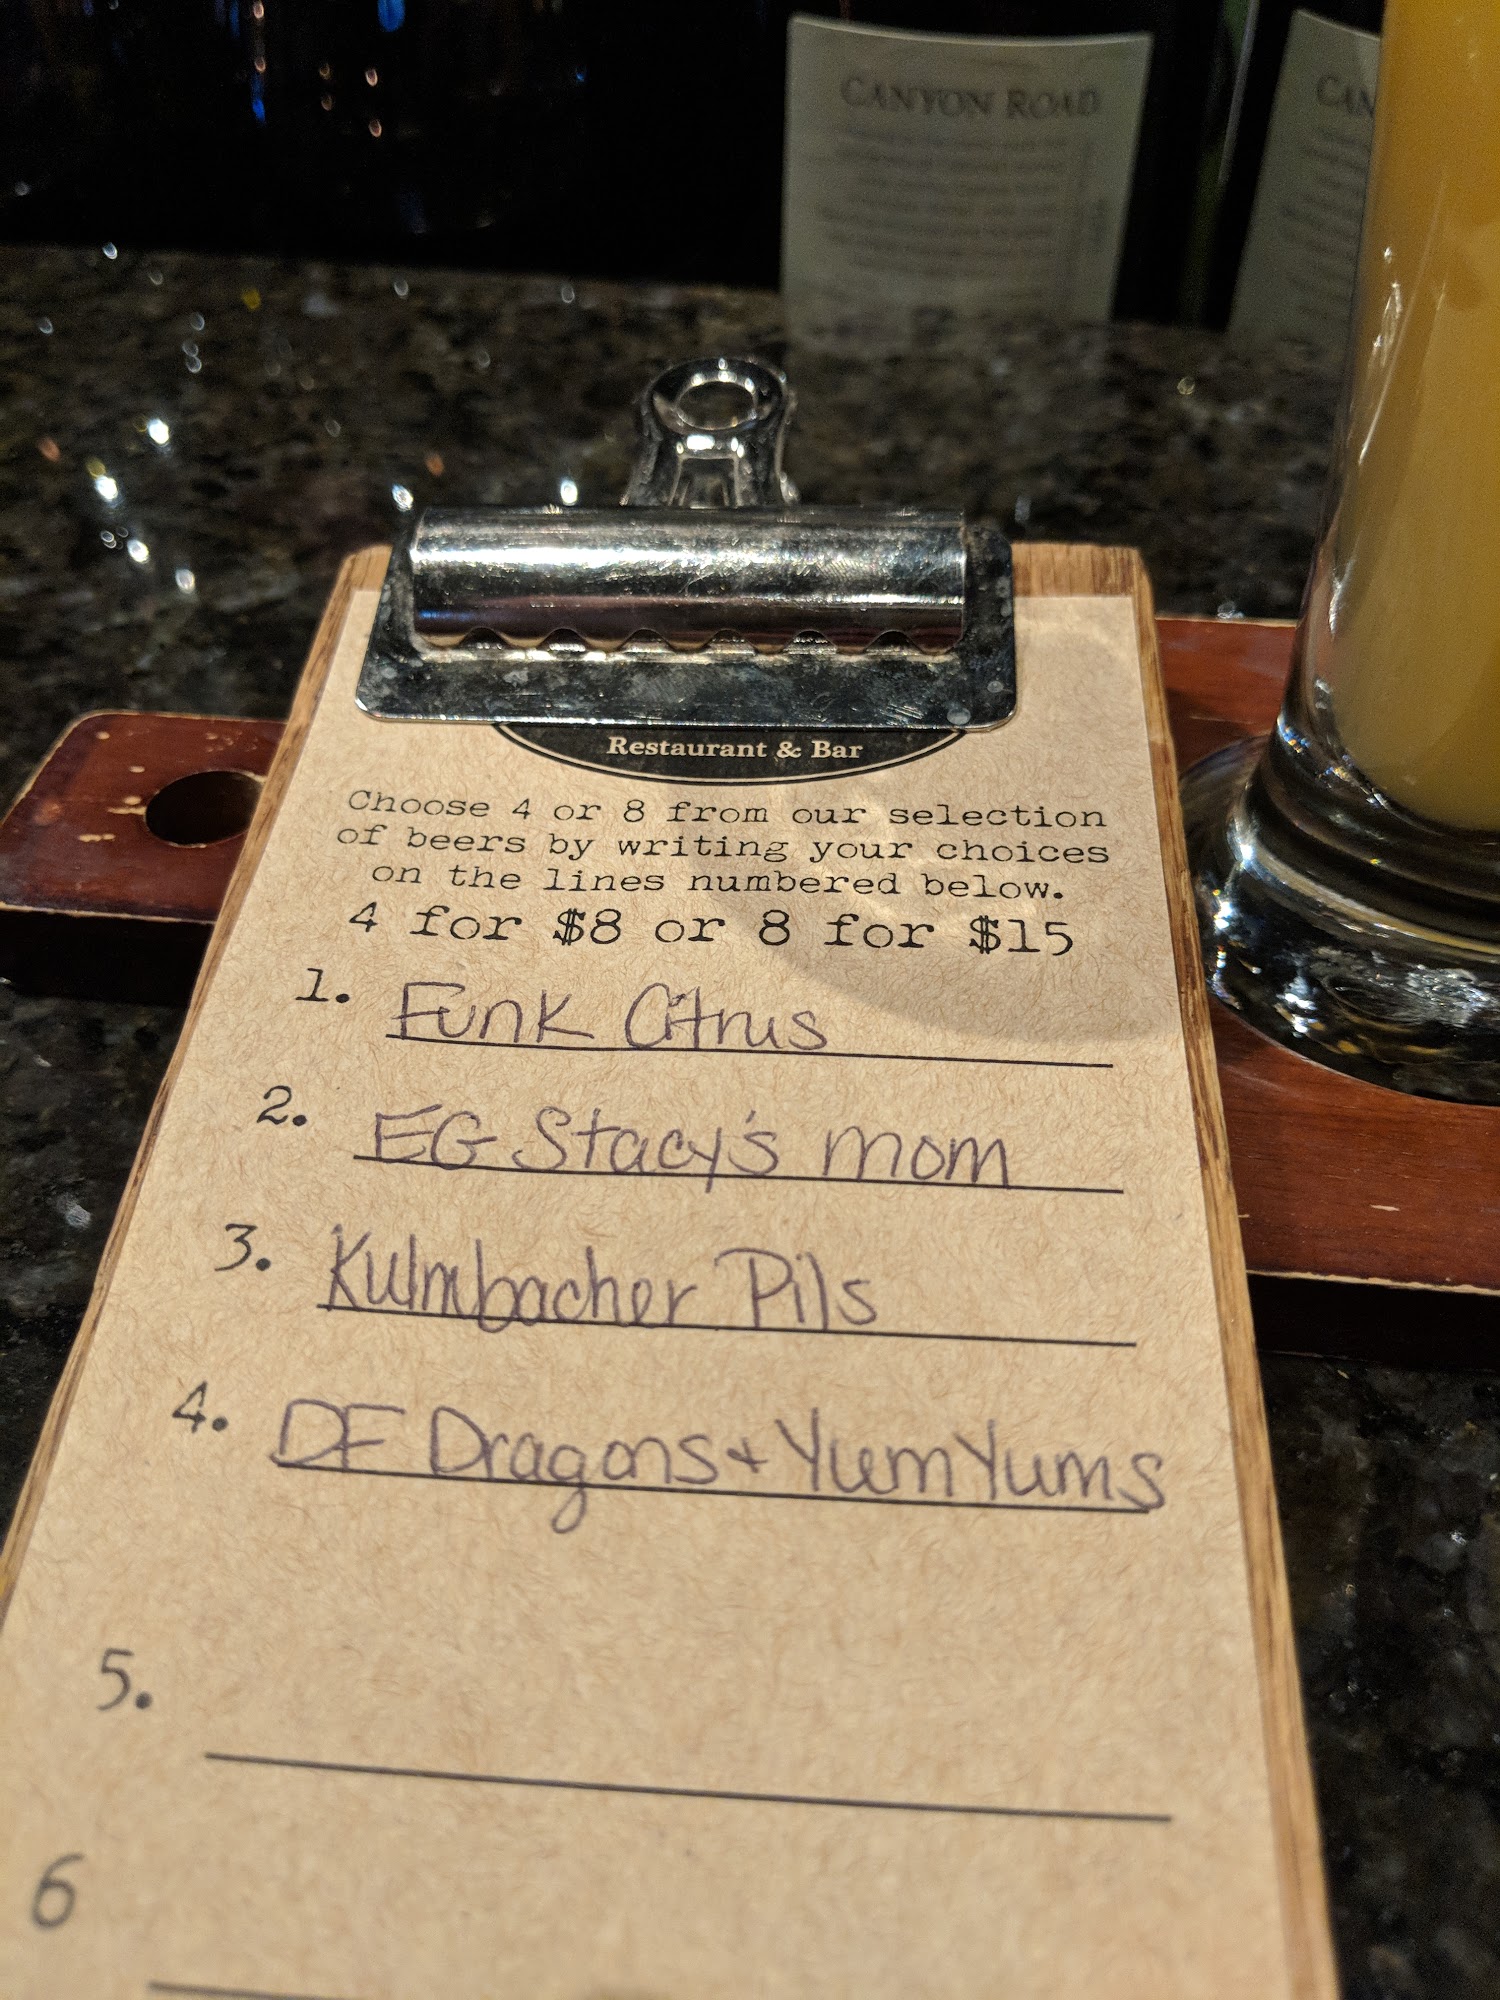 CANYON ROAD
CAN
Restaurant & Bar
Choose 4 or 8 from our selection
of beers by writing your choices
on the lines numbered below.
4 for $8 or 8 for $15
1. Funk Citrus
2. EG Stacy's mom
3. Kulmbacher Pils
4. DF Dragons + YumYums
5.
6